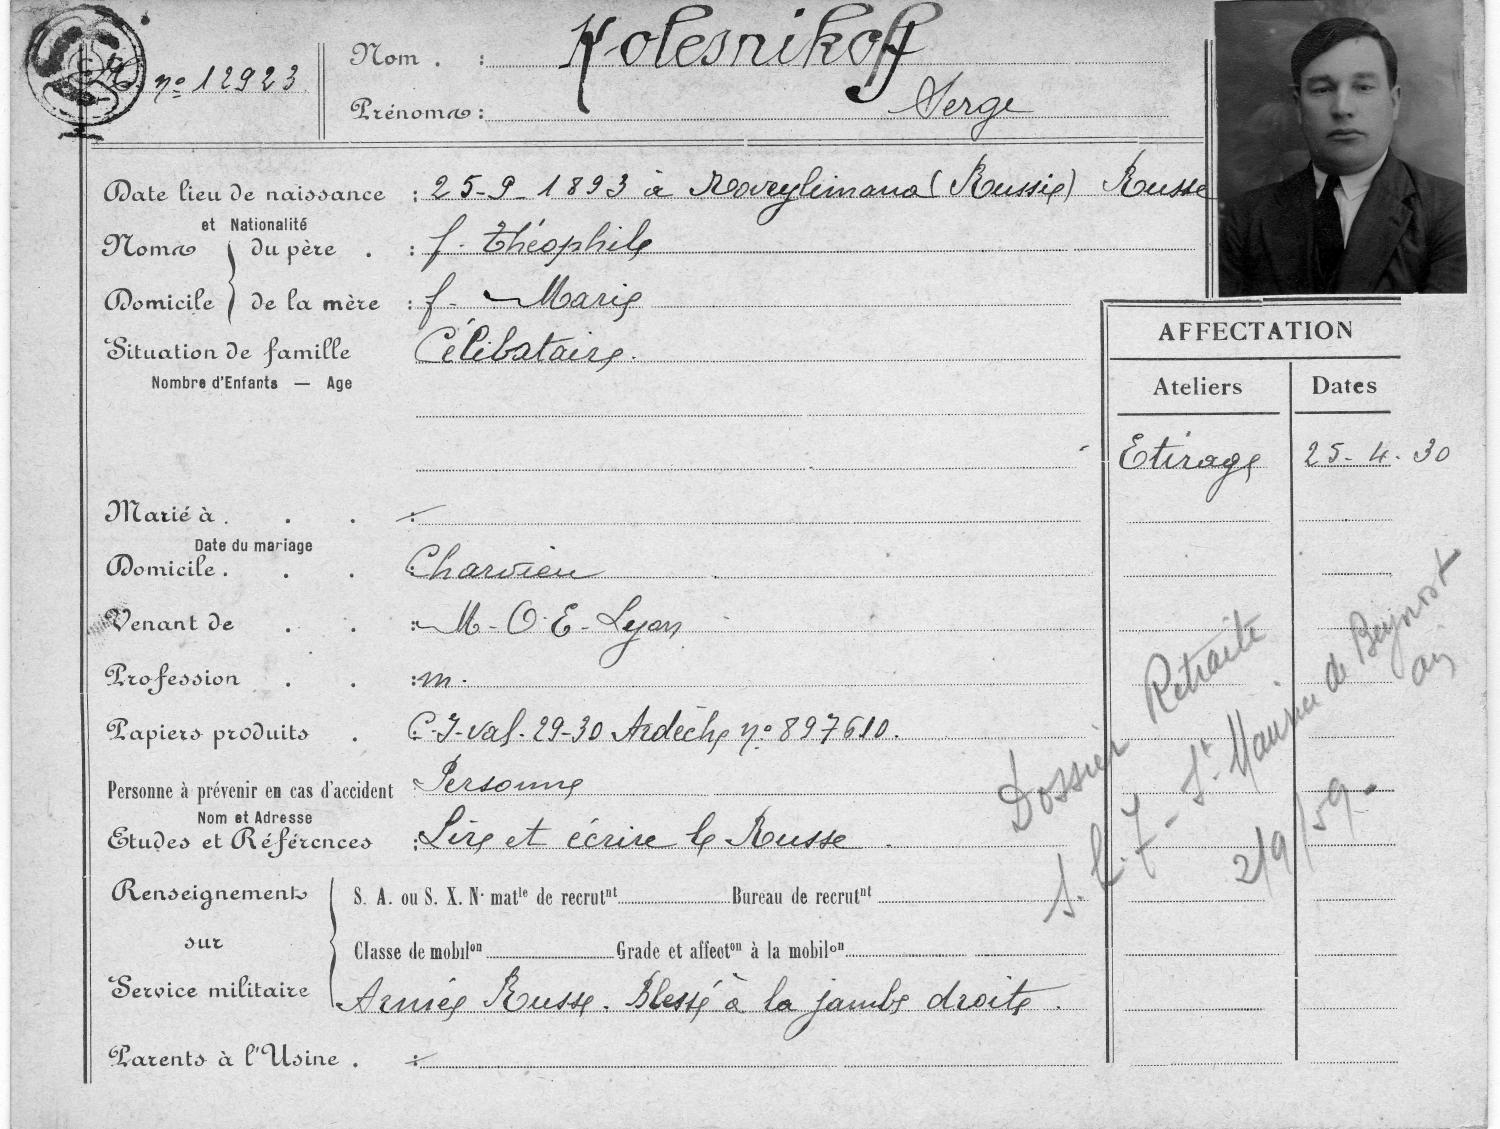 nº 12923
Nom . : Kolesnikoff
Prénoms : Serge
Date lieu de naissance : 25-9-1893 à (Russie) Russe
et Nationalité
Noms du père . : f. Théophile
Domicile de la mère : f. Marie
Situation de famille Célibataire.
Nombre d'Enfants — Age
AFFECTATION
Ateliers Dates
Etirage 25-4-30
Marié à . . . :
Date du mariage
Domicile . . . : Charvieu
Venant de . . : M-O-E-Lyon
Profession . . : m.
Papiers produits . C.I val. 29-30 Ardèche nº 897610.
Personne à prévenir en cas d'accident Personne
Nom et Adresse
Etudes et Références : Lire et écrire le Russe.
Dossier Retraite
St Maurice de Beynost
Ain
2/9/59.
Renseignements sur Service militaire
S. A. ou S. X. Nº matle de recrutnt Bureau de recrutnt
Classe de mobilon Grade et affecton à la mobilon
Armée Russe. Blessé à la jambe droite.
Parents à l'Usine . :